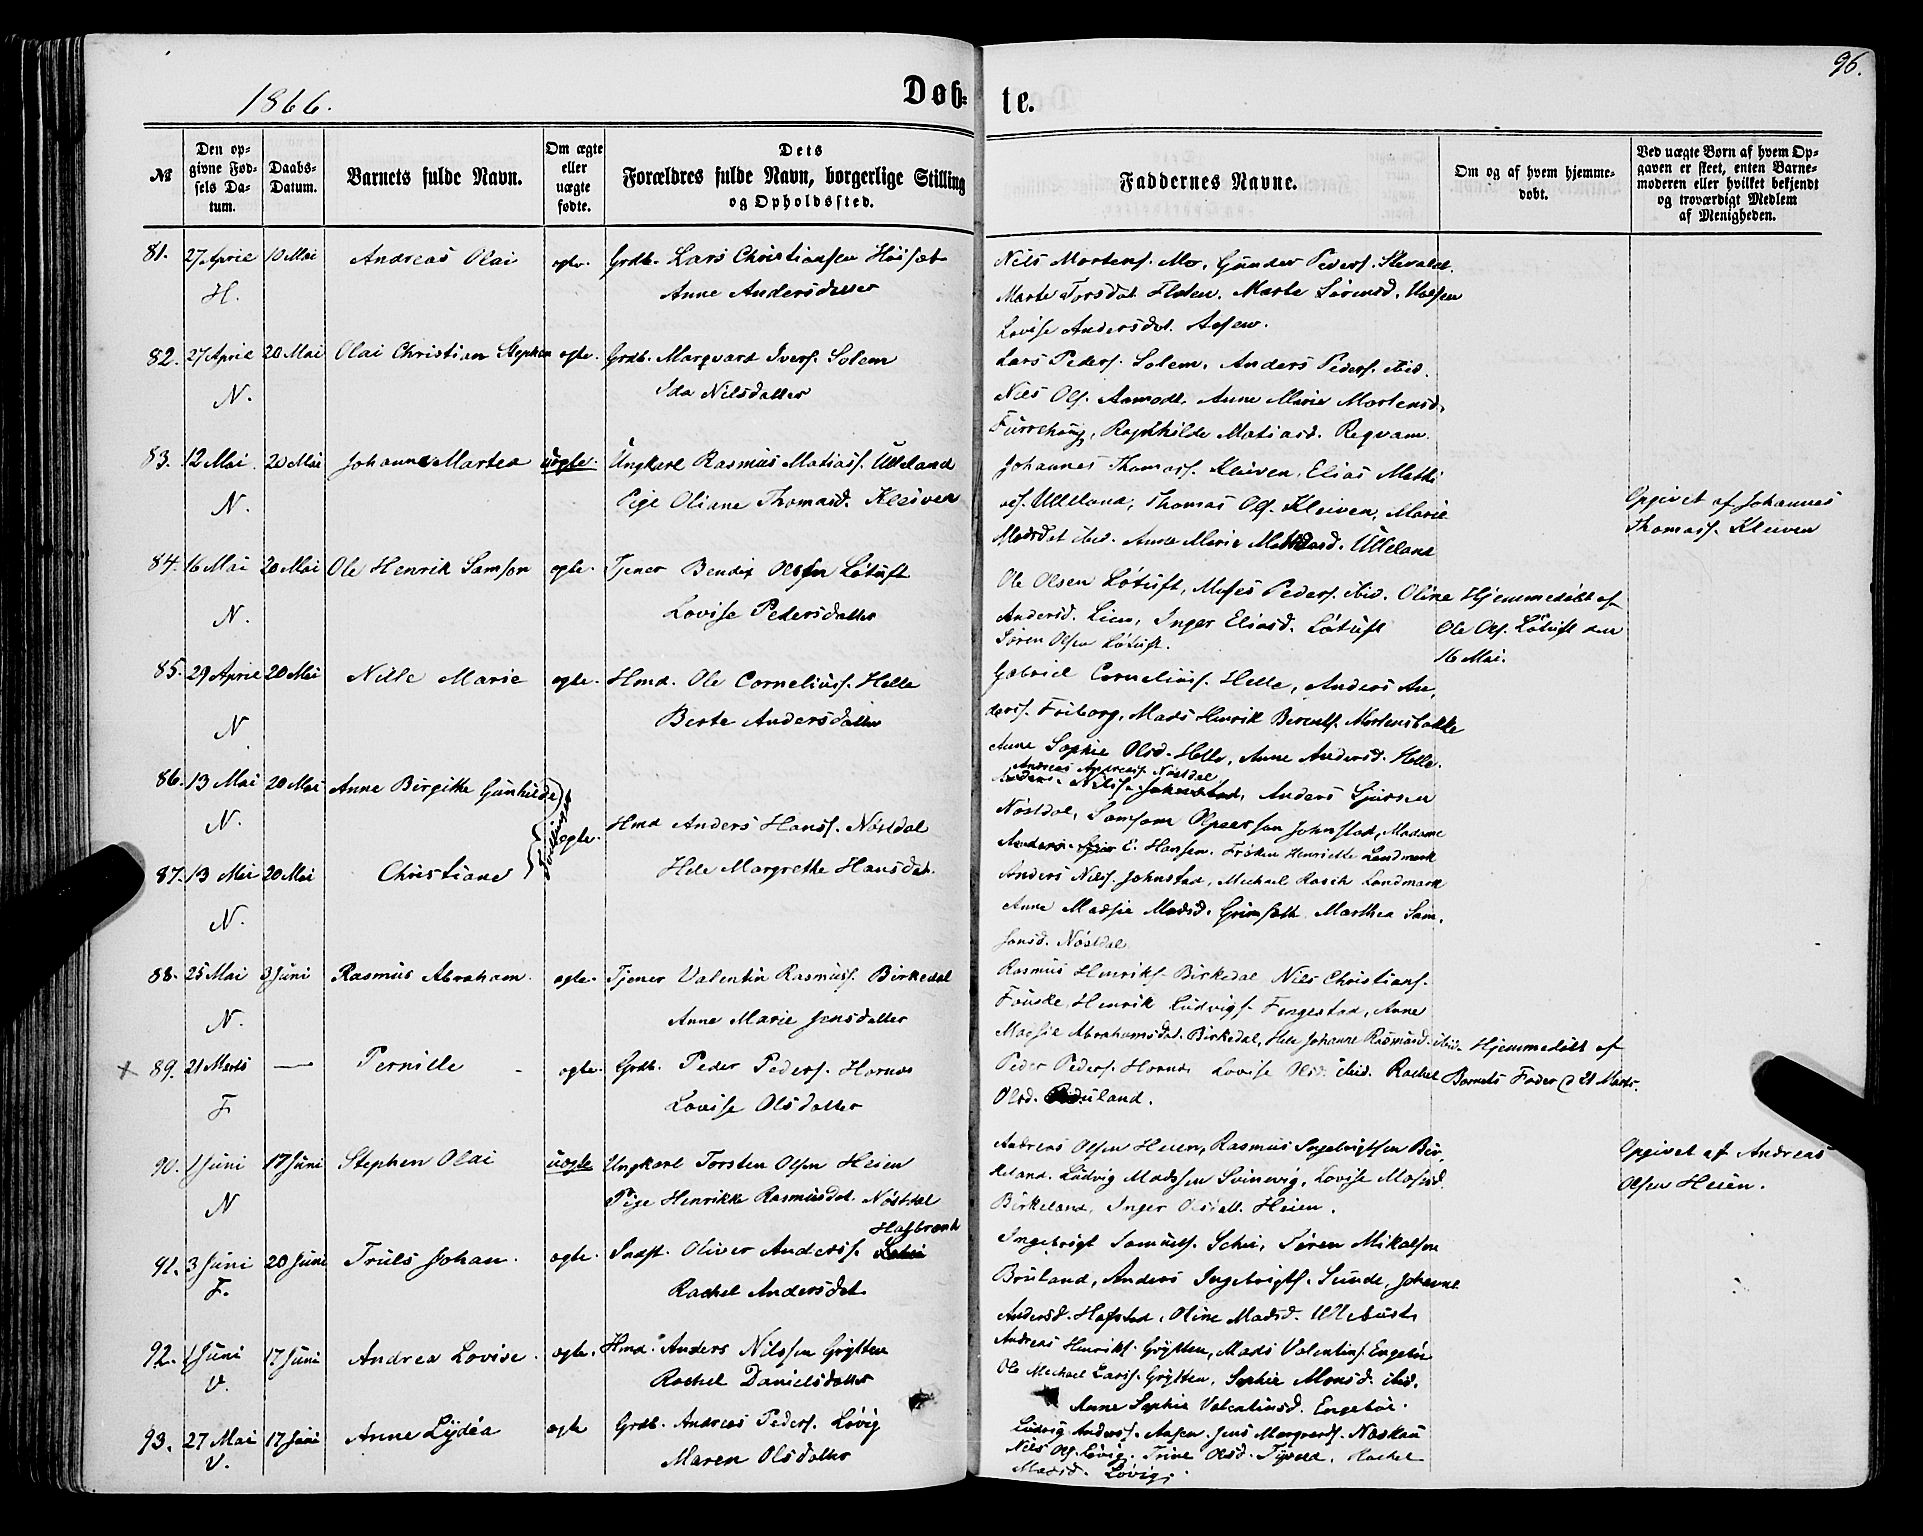 96.
1866.
Døb- te.
№
Den op-
givne Fød-
sels Da-
tum.
Daabs-
Datum.
Barnets fulde Navn.
Om ægte
eller
uægte
fødte.
Dets
Forældres fulde Navn, borgerlige Stilling
og Opholdssted.
Faddernes Navne.
Om og af hvem hjemme-
døbt.
Ved uægte Børn af hvem Op-
gaven er skeet, enten Barne-
moderen eller hvilket bekjendt
og troværdigt Medlem
af Menigheden.
81. 27 April 10 Mai Andreas Olai ægte. Grdb. Lars Christiansen Høisæt
H. Anne Andersdatter
Nils Mortens. Mo, Gunder Peders.
Marte Torsdat. Marte Sørensd.
Lovise Andersdat. Aasen.
82. 27 April 20 Mai Olai Christian Stephen ægte. Grdb. Marqvard Ivers. Solem
N. Ida Nilsdatter
Lars Peders. Solem, Anders Peders. ibid.
Nils Ols. Aamodt, Anne Marie Mortensd.
Furrehaug, Ragnhilde Matiasd. Reqvam.
83. 12 Mai. 20 Mai Johanne Martea uægte. Ungkarl Rasmus Matiass. Ulleland
N. Pige Oliane Thomasd. Kleiven
Johannes Thomass. Kleiven, Elias Mathi
as. Ulleland, Thomas Ols. Kleiven, Marie
Madsdat ibid. Anne Marie Ulleland
Opgivet af Johannes
Thomass. Kleiven
84. 16 Mai 20 Mai Ole Henrik Samson ægte. Tjener Bendix Olsen Løtuft
N. Lovise Pedersdatter
Ole Olsen Løtuft, Moses Peders. ibid. Oline
Andersd. Lien, Inger Eliasd. Løtuft
Søren Olsen Løtuft.
Hjemmedøbt af
Ole Ols. Løtuft den
16 Mai.
85. 29 April 20 Mai Nille Marie ægte. Hmd. Ole Corneliuss. Helle
N Berte Andersdatter
Gabriel Corneliuss. Helle, Anders An-
derss. Friborg, Mads Henrik Berents. Mortensbakke
Anne Sophie Olsd. Helle, Anne Andersd. Helle.
86. 13 Mai 20 Mai Anne Birgitte Gunhilde
N. Tvillinger ægte. Hmd Anders Hanss. Nøstdal
Andreas Andreass. Nøstdal
Anders Nilss. Johnstad, Anders Sjursen
Nøstdal, Samson Olpeersen Johnstad, Madame
E. Hansen. Frøken Henriette Landmark
87. 13 Mai 20 Mai Christiane Hele Margrethe Hansdat.
N.
Anders Nilss. Johnstad, Michael Rasch Landmark
Anne Madsie Madsd. Grimsæth, Marthea Sam-
sonsd. Nøstdal
88. 25 Mai 3 Juni Rasmus Abraham. ægte. Tjener Valentin Rasmuss. Birkedal
N. Anne Marie Jensdatter
Rasmus Henriks. Birkedal, Nils Christians.
Fauske, Henrik Ludvigs. Fengestad, Anne
Madsie Abrahamsdat. Birkedal, Johanne Rasmusd. ibid.
× 89. 21 Marts — Pernille ægte. Grdb. Peder Peders. Hornes
F Lovise Olsdatter
Peder Peders. Hornes Lovise Olsd. ibid. Rachel
Olsd. Bruland.
Hjemmedøbt af
Barnets Fader d 21 Marts.
90. 1 Juni 17 Juni Stephen Olai uægte Ungkarl Torsten Olsen Heien
N Pige Henrikke Rasmusdat. Nøstdal
Andreas Olsen Heien, Rasmus Ingebrigtsen Bir-
keland, Ludvig Madssen Svinevig, Lovise Mosesd.
Birkeland, Inger Olsdatt. Heien.
Opgivet af Andreas
Olsen Heien.
91. 3 Juni 20 Juni Truls Johan. ægte. Indst. Oliver Anderss. Hafbrandt
F. Rachel Andersdat.
Ingebrigt Samuels. Schei, Søren Mikalsen
Bruland, Anders Ingebrigts. Sunde, Johanne
Andersd. Hafstad, Oline Madsd. Ullebust
92. 1 Juni 17 Juni Andrea Lovise. ægte. Hmd. Anders Nilssen Grytten
V. Rachel Danielsdatter
Andreas Henriks. Grytten, Mads Valentins. Engebøe
Ole Michael Larss. Grytten, Sophie Monsd. ibid.
Anne Sophie Valentinsd. Engebøe.
93. 27 Mai 17 Juni Anne Lydéa ægte Grdb. Andreas Peders. Løvig
V. Maren Olsdatter
Ludvig Anderss. Aasen, Jens Margvards. Naskau
Nils Ols. Løvig, Trine Olsd. Rachel
Madsd. Løvig.